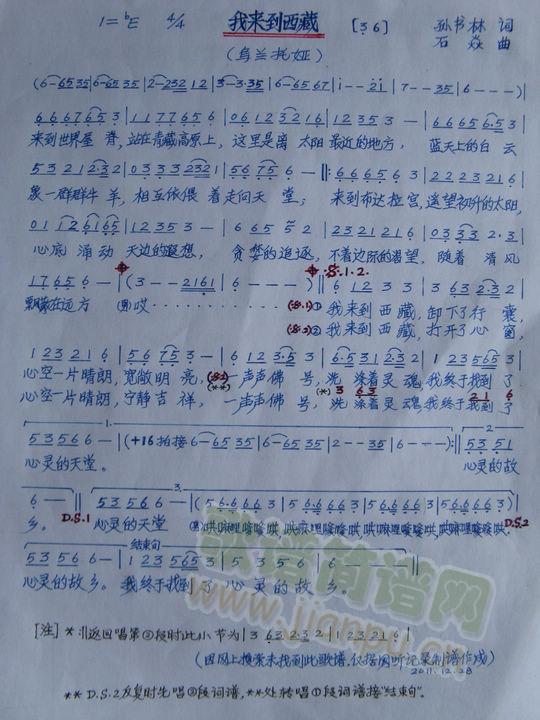 1=♭E 4/4 我来到西藏 [3 6] 孙书林 词
(乌兰托娅) 石焱 曲
(6-6535|6-6535|2-232 12|3-3·35|6-6535|67|i--2i|7--35|6---)
6667653|1177656|06123216|12353-|66656·53|
来到世界屋脊,站在青藏高原上,这里是离 太阳最近的地方, 蓝天上的白云
53212·32|03332321|56756-‖:666563|2223216|
象一群群牛羊,相互依偎着走向天堂; 来到布达拉宫,遥望初升的太阳,
01126165|12353-|66552|2321216|03332·3|
心底涌动 天边的遐想, 贪婪的追逐,不着边际的渴望,随着 清风
17656-|(3--2161|6---)|𝄋.1.2.|61233|3632·32|
飘荡在远方 (男)哎············ (𝄋.1)①我来到西藏,卸下了行囊,
(𝄋.2)②我来到西藏,打开了心窗,
1232216|56753-|6123·53|6·5312·32|1235653|
心空一片晴朗,宽敞明亮,(𝄋2)(**)一声声佛号,洗涤着灵魂,我终于找到了
心空一片晴朗,宁静吉祥, 一声声佛号,(*)洗涤着灵魂,我终于找到了
53566-|(+16拍接6-6535|6-6535|2--35|6---):‖5351
心灵的天堂。 心灵的故
6-‖D.S.1 53566-|(566663|566663|566663|566663)|D.S.2
乡。 心灵的天堂 (男)哄嘛呢唵唵哄,哄嘛呢唵唵哄,哄嘛呢唵唵哄,哄嘛呢唵唵哄.
结束句
53566-|1235653|5356|6---|
心灵的故乡。我终于找到了 心灵的故乡。
歌谱简谱网
www.jianpu.cn
[注] *:‖返回唱第②段时此小节为|3632·32|1232216|
(因网上搜索未找到此歌谱,仅据网听记录制谱作成)
2011.12.28
**D.S.2反复时先唱②段词谱,**处转唱①段词谱接"结束句"。